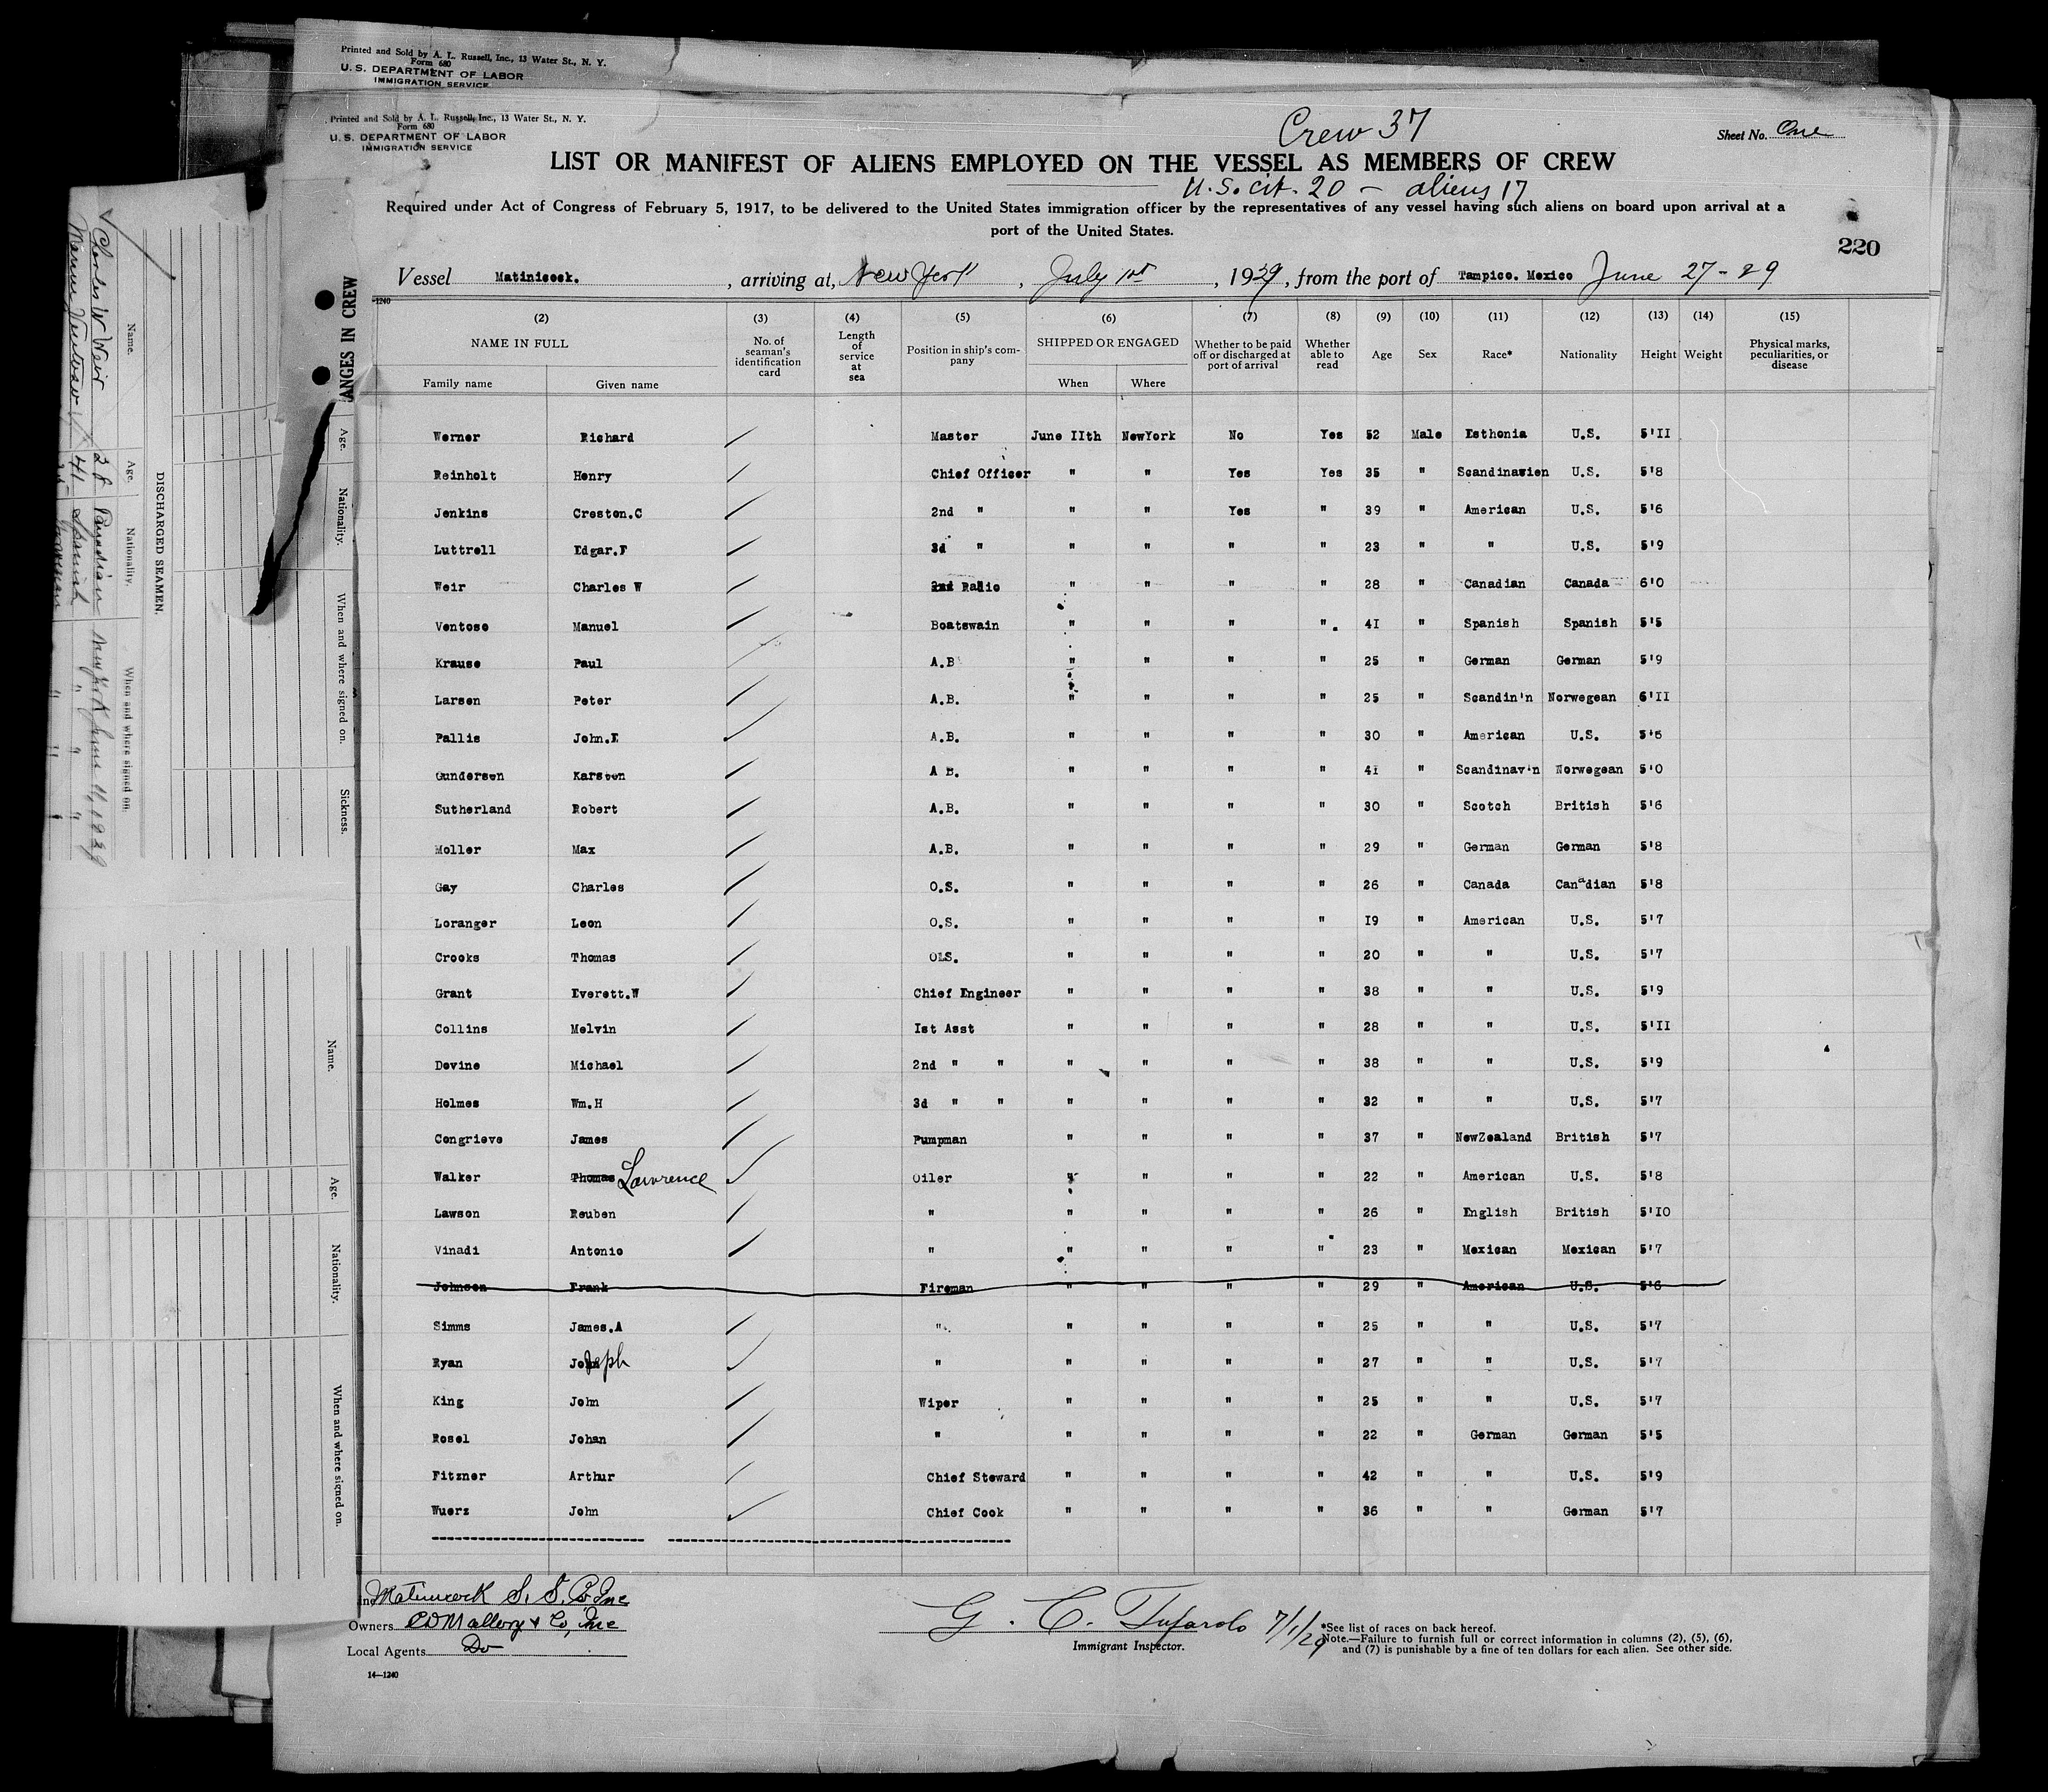 Printed and Sold by A. L. Russell, Inc., 13 Water St., N. Y.
Form 680
U. S. DEPARTMENT OF LABOR
IMMIGRATION SERVICE
Printed and Sold by A. L. Russell, Inc., 13 Water St., N. Y.
Form 680
U. S. DEPARTMENT OF LABOR
IMMIGRATION SERVICE
Crew 37
Sheet No. One
LIST OR MANIFEST OF ALIENS EMPLOYED ON THE VESSEL AS MEMBERS OF CREW
U.S. cit. 20 - aliens 17
Required under Act of Congress of February 5, 1917, to be delivered to the United States immigration officer by the representatives of any vessel having such aliens on board upon arrival at a
port of the United States.
220
Vessel Matinicock. , arriving at, New York , July 1st , 1929, from the port of Tampico. Mexico June 27-29
1240
(2) (3) (4) (5) (6) (7) (8) (9) (10) (11) (12) (13) (14) (15)
NAME IN FULL No. of seaman's identification card Length of service at sea Position in ship's company SHIPPED OR ENGAGED Whether to be paid off or discharged at port of arrival Whether able to read Age Sex Race* Nationality Height Weight Physical marks, peculiarities, or disease
Family name Given name When Where
Werner Richard Master June IIth NewYork No Yes 52 Male Esthonia U.S. 5'II
Reinholt Henry Chief Officer " " Yes Yes 35 " Scandinavien U.S. 5'8
Jenkins Creston.C 2nd " " " Yes " 39 " American U.S. 5'6
Luttrell Edgar.F 3d " " " " " 23 " " U.S. 5'9
Weir Charles W 2nd Radio " " " " 28 " Canadian Canada 6'0
Ventoso Manuel Boatswain " " " " 4I " Spanish Spanish 5'5
Krause Paul A.B " " " " 25 " German German 5'9
Larsen Peter A.B. " " " " 25 " Scandin'n Norwegean 6'II
Pallis John.E A.B. " " " " 30 " American U.S. 5'6
Gundersen Karsten A B. " " " " 4I " Scandinav'n Norwegean 5'0
Sutherland Robert A.B. " " " " 30 " Scotch British 5'6
Moller Max A.B. " " " " 29 " German German 5'8
Gay Charles O.S. " " " " 26 " Canada Canadian 5'8
Loranger Leon O.S. " " " " I9 " American U.S. 5'7
Crooks Thomas OLS. " " " " 20 " " U.S. 5'7
Grant Everett.W Chief Engineer " " " " 38 " " U.S. 5'9
Collins Melvin Ist Asst " " " " 28 " " U.S. 5'II
Devine Michael 2nd " " " " " " 38 " " U.S. 5'9
Holmes Wm.H 3d " " " " " " 32 " " U.S. 5'7
Congrieve James Pumpman " " " " 37 " NewZealand British 5'7
Walker Thomas Lawrence Oiler " " " " 22 " American U.S. 5'8
Lawson Reuben " " " " " 26 " English British 5'IO
Vinadi Antonio " " " " " 23 " Mexican Mexican 5'7
Johnson Frank Fireman " " " " 29 " American U.S. 5'6
Simms James.A " " " " " 25 " " U.S. 5'7
Ryan Joseph " " " " " 27 " " U.S. 5'7
King John Wiper " " " " 25 " " U.S. 5'7
Rosel Johan " " " " " 22 " German German 5'5
Fitzner Arthur Chief Steward " " " " 42 " " U.S. 5'9
Wuerz John Chief Cook " " " " 36 " " German 5'7
Matinicock S. S. Co Inc
Owners CD Mallory & Co, Inc
Local Agents Do
14—1240
G. C. Tufarolo 7/1/29
Immigrant Inspector.
*See list of races on back hereof.
Note.—Failure to furnish full or correct information in columns (2), (5), (6),
and (7) is punishable by a fine of ten dollars for each alien. See other side.
ANGES IN CREW
Age. Nationality. When and where signed on. Sickness.
Name. Age. Nationality. When and where signed on.
DISCHARGED SEAMEN.
Name. Age. Nationality. When and where signed on.
Charles W Weir 28 Canadian New York June 11, 1929
Manuel Ventoso 41 Spanish " " "